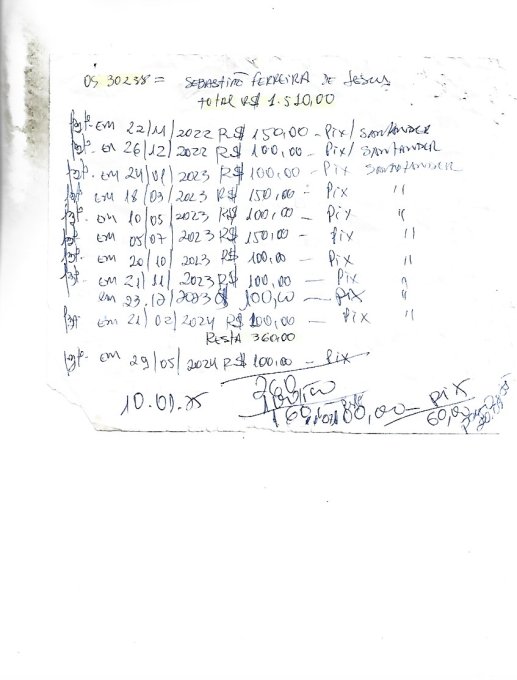 OS 30238 = SEBASTIÃO FERREIRA DE JESUS
TOTAL R$ 1.510,00
pgtº em 22/11/2022 R$ 150,00 - Pix/ SANTANDER
pgtº em 26/12/2022 R$ 100,00 - Pix/ SANTANDER
pgtº em 24/01/2023 R$ 100,00 - Pix SANTANDER
pgtº em 18/03/2023 R$ 150,00 - Pix "
pgtº em 10/05/2023 R$ 100,00 - Pix "
pgtº em 05/07/2023 R$ 150,00 - Pix "
pgtº em 20/10/2023 R$ 100,00 - Pix "
pgtº em 21/11/2023 R$ 100,00 - Pix "
em 23.12/2023 100,00 - Pix "
pgtº em 21/02/2024 R$ 100,00 - Pix "
RESTA 360,00
pgtº em 29/05/2024 R$ 100,00 - Pix
360
10.01.25 160, 100,00 - PIX
60,00